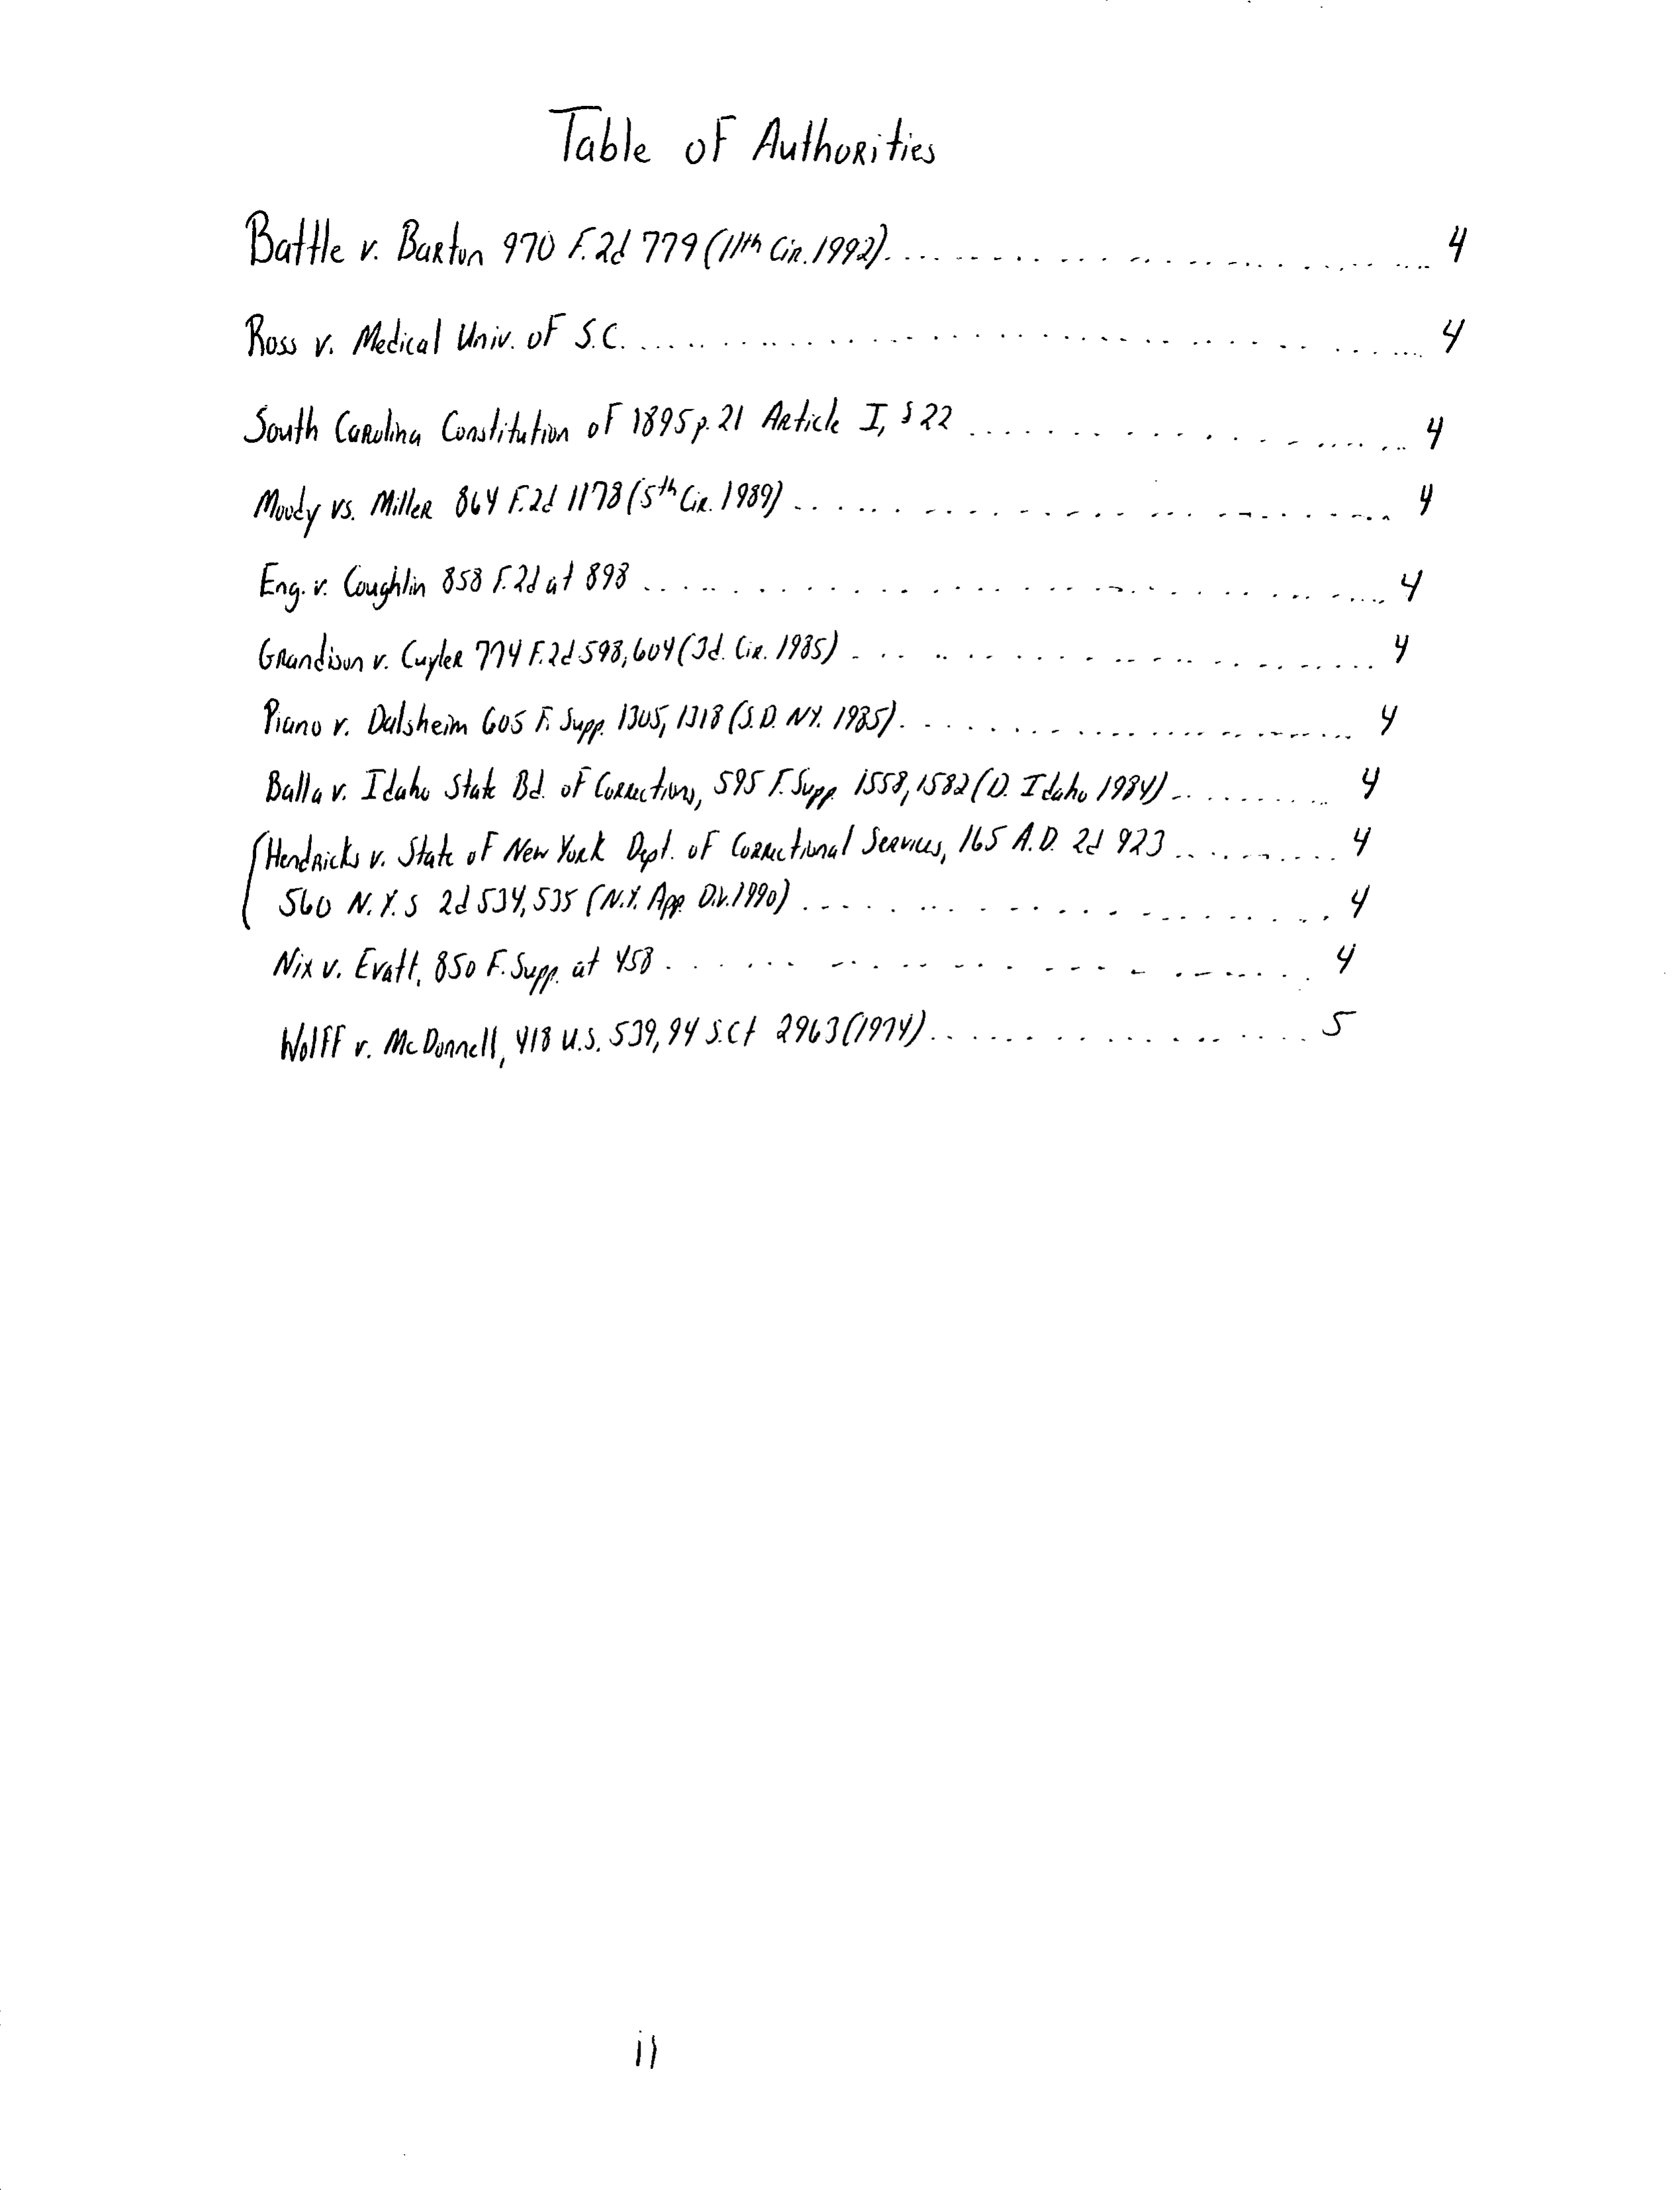 Table of Authorities
Battle v. Barton 970 F.2d 779 (11th Cir. 1992). 4
Ross v. Medical Univ. of S.C. 4
South Carolina Constitution of 1895 p. 21 Article I, § 22 4
Moody vs. Miller 864 F.2d 1178 (5th Cir. 1989) 4
Eng. v. Coughlin 858 F.2d at 898 4
Grandison v. Cuyler 774 F.2d 598, 604 (3d. Cir. 1985) 4
Piano v. Dalsheim 605 F. Supp. 1305, 1318 (S.D. NY. 1985). 4
Balla v. Idaho State Bd. of Corrections, 595 F. Supp. 1558, 1582 (D. Idaho 1984) 4
Hendricks v. State of New York Dept. of Correctional Services, 165 A.D. 2d 923 4
560 N.Y.S 2d 534, 535 (N.Y. App. Div. 1990) 4
Nix v. Evatt, 850 F. Supp. at 458 4
Wolff v. McDonnell, 418 U.S. 539, 94 S.Ct 2963 (1974) 5
ii